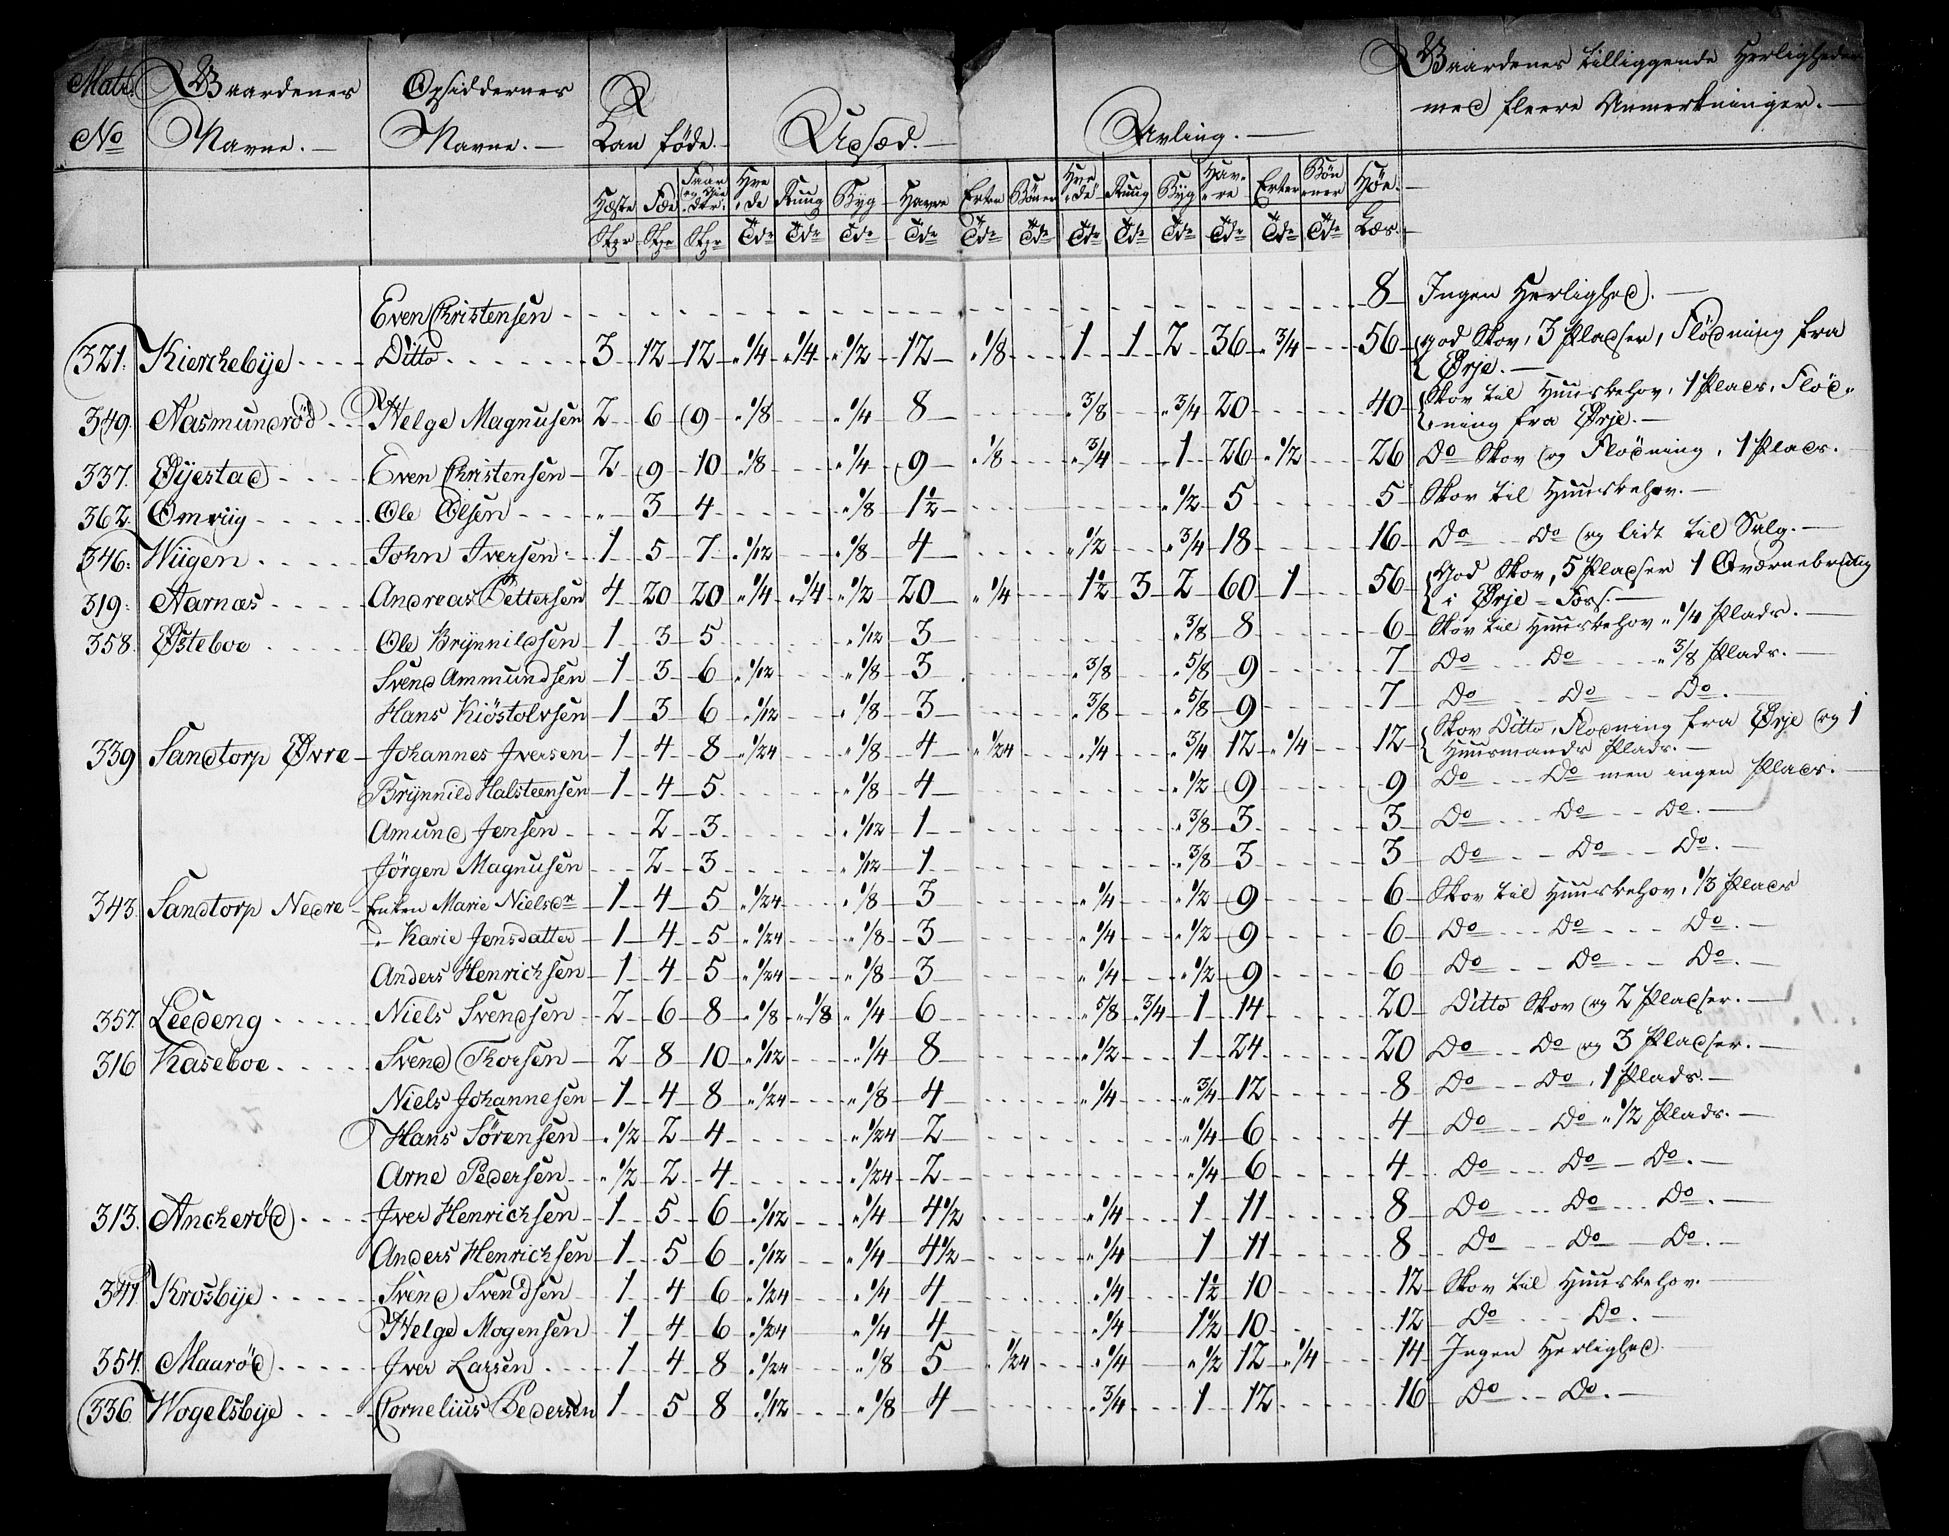 Matr. Gaardenes Opsiddernes Kan føde. Udsæd. Avling. Gaardenes tilliggende Herligheder
No Navne. Navne. med fleere Anmerkninger.
Hæste Fæe Faar og Gieder Hvede Rug Byg Havre Erter Bönner Hvede Rug Byg Havre Erter Bönner Höe
Stkr Stkr Stkr Tdr Tdr Tdr Tdr Tdr Tdr Tdr Tdr Tdr Tdr Tdr Tdr Læs.
Even Christensen 8 Ingen Herlighed.
321. Kierkebije Ditto 3 12 12 " 1/4 " 1/4 " 1/2 12 " 1/8 1 1 2 36 " 3/4 56 god Skov, 3 Pladser, Flödning fra
Ørje.
349. Aasmundröd Helge Magnusen 2 6 9 " 1/8 " 1/4 8 " 3/8 " 3/4 20 40 Skov til Huusbehov, 1 Plads, Flöd-
ning fra Ørje.
337. Øijestad Even Christensen 2 9 10 " 1/8 " 1/4 9 " 1/8 " 3/4 1 26 " 1/2 26 Do Skov og Flödning, 1 Plads.
362. Omriig Ole Olsen " 3 4 " 1/8 1 1/2 " 1/2 5 5 Skov til Huusbehov.
346. Wiigen John Iversen 1 5 7 " 1/12 " 1/8 4 " 1/2 " 3/4 18 16 Do Do og lidt til Salg.
319. Aarnæs Andreas Pettersen 4 20 20 " 1/4 " 1/4 " 1/2 20 " 1/4 1 1/2 3 2 60 1 56 God Skov, 5 Pladser 1 Qværnebrug
i Ørje-Foss.
358. Østeboe Ole Brijnnildsen 1 3 5 " 1/12 3 " 3/8 8 6 Skov til Huusbehov " 1/4 Plads.
Svend Ammundsen 1 3 6 " 1/12 " 1/8 3 " 3/8 " 5/8 9 7 Do Do " 3/8 Plads.
Hans Kiöstolvsen 1 3 6 " 1/12 " 1/8 3 " 3/8 " 5/8 9 7 Do Do Do.
339 Sandtorp Øvre Johannes Iversen 1 4 8 " 1/24 " 1/8 4 " 1/24 " 1/4 " 3/4 12 " 1/4 12 Skov Ditto, Flodning fra Ørje og 1
Huusmands Plads.
Brijnnild Halsteensen 1 4 5 " 1/8 4 " 1/2 9 9 Do Do men ingen Plads.
Amund Jensen 2 3 " 1/12 1 " 3/8 3 3 Do Do Do.
Jörgen Magnusen 2 3 " 1/12 1 " 3/8 3 3 Do Do Do.
343. Sandtorp Nedre Enken Marie Nielsdr 1 4 5 " 1/24 " 1/8 3 " 1/4 " 1/2 9 6 Skov til Huusbehov, 1/3 Plads
" Karie Jensdatter 1 4 5 " 1/24 " 1/8 3 " 1/4 " 1/2 9 6 Do Do Do.
Anders Henrichsen 1 4 5 " 1/24 " 1/8 3 " 1/4 " 1/2 9 6 Do Do Do.
357. Leedeng Niels Svendsen 2 6 8 " 1/8 " 1/8 " 1/4 6 " 5/8 " 3/4 1 14 20 Ditto Skov og 2 Pladser.
316 Kaseboe Svend Thorsen 2 8 10 " 1/12 " 1/4 8 " 1/2 1 24 20 Do Do og 3 Pladser.
Niels Johannesen 1 4 8 " 1/24 " 1/8 4 " 1/4 " 3/4 12 8 Do Do, 1 Plads.
Hans Sörensen " 1/2 2 4 " 1/24 2 " 1/4 6 4 Do Do " 1/2 Plads.
Arne Pedersen " 1/2 2 4 " 1/24 2 " 1/4 6 4 Do Do Do.
313. Ancheröd Iver Henrichsen 1 5 6 " 1/12 " 1/4 4 1/2 " 1/4 1 11 8 Do Do Do.
Anders Henrichsen 1 5 6 " 1/12 " 1/4 4 1/2 " 1/4 1 11 8 Do Do Do.
341 Krosbije Svend Svendsen 1 4 6 " 1/24 " 1/4 4 " 1/4 1 1/2 10 12 Skov til Huusbehov.
Helge Mogensen 1 4 6 " 1/24 " 1/4 4 " 1/4 1 1/2 10 12 Do Do.
354. Mauröd Iver Larsen 1 4 8 " 1/24 " 1/8 5 " 1/24 " 1/4 " 1/2 12 " 1/4 14 Ingen Herlighed.
336 Wogelsbije Cornelius Pedersen 1 5 8 " 1/12 " 1/8 4 " 3/4 1 12 16 Do Do.